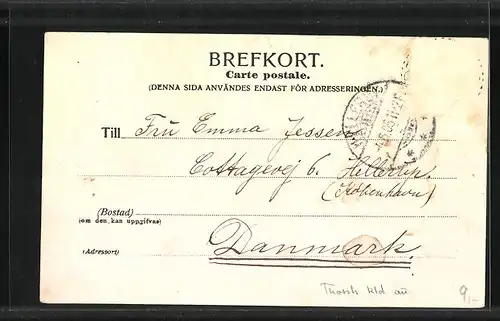 BREFKORT.
Carte postale.
(DENNA SIDA ANVÄNDES ENDAST FÖR ADRESSERINGEN.)
Till Fru Emma Jessen
Cottagevej 6. Hellerup.
(Kjöbenhavn)
(Bostad)
(om den kan uppgifvas)
(Adressort) Danmark.
9,-